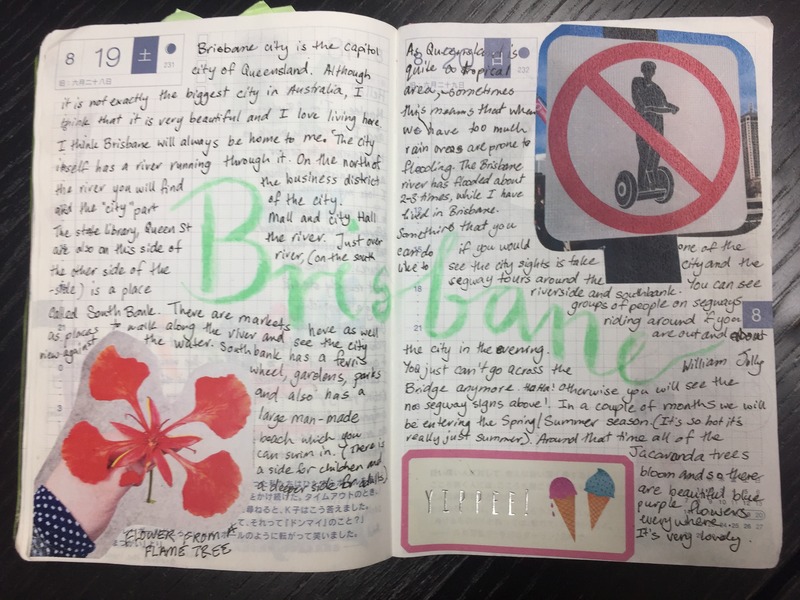 8 19 土
231
旧:六月二十八日
Brisbane city is the capitol
city of Queensland. Although
it is not exactly the biggest city in Australia, I
think that it is very beautiful and I love living here.
I think Brisbane will always be home to me. The city
itself has a river running through it. On the north of
the river you will find the business district
and the "city" part of the city.
The state library, Queen St Mall and City Hall
are also on this side of the river. Just over
the other side of the river, (on the south
-side) is a place
called South Bank. There are markets here as well
as places to walk along the river and see the city
new against the water. Southbank has a ferris
wheel, gardens, parks
and also has a
large man-made
beach which you
can swim in. (There is
a side for children and
a deeper side for adults)
とかけ続けた。タイムアウトのとき、
尋ねると、K子はこう答えました。
て、それって『ドンマイ』のこと?」
ルのように転がって笑いました。
FLOWER FROM A
FLAME TREE
Brisbane
8 日
232
As Queensland is
quite a tropical
area, sometimes
this means that when
we have too much
rain areas are prone to
flooding. The Brisbane
river has flooded about
2-3 times, while I have
lived in Brisbane.
Something that you
can do if you would one of the
like to see the city sights is take city and the
segway tours around the You can see
riverside and southbank.
groups of people on segways
riding around if you
are out and about
the city in the evening.
You just can't go across the William Jolly
Bridge anymore. Haha! Otherwise you will see the
no segway signs above! In a couple of months we will
be entering the Spring/Summer season. (It's so hot it's
really just summer). Around that time all of the
Jacaranda trees
bloom and so there
are beautiful blue
purple flowers
everywhere.
It's very lovely.
18
21
8
YIPPEE!